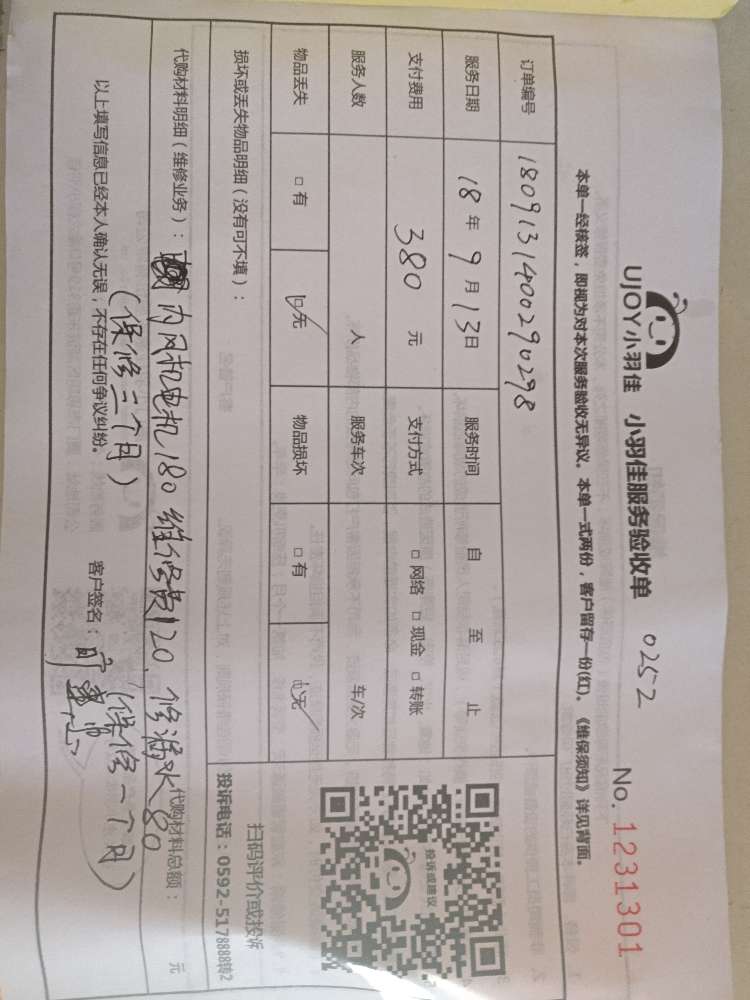 UJOY小羽佳 小羽佳服务验收单 0252 No. 1231301
本单一经核签，即视为对本次服务验收无异议。本单一式两份，客户留存一份(红)。《维保须知》详见背面。
订单编号 1809131400290298
服务日期 18年9月13日 服务时间 自 至 止
支付费用 380 元 支付方式 □ 网络 □ 现金 □ 转账
服务人数 人 服务车次 车/次
物品丢失 □ 有 □ 无 物品损坏 □ 有 □ 无
损坏或丢失物品明细（没有可不填）：
投诉或建议
扫码评价或投诉
投诉电话：0592-5178888转2
代购材料明细（维修业务）： 内风机电机180 维修费120. 修漏水80
代购材料总额： 元
（保修三个月） （保修一个月）
以上填写信息已经本人确认无误，不存在任何争议纠纷。 客户签名：